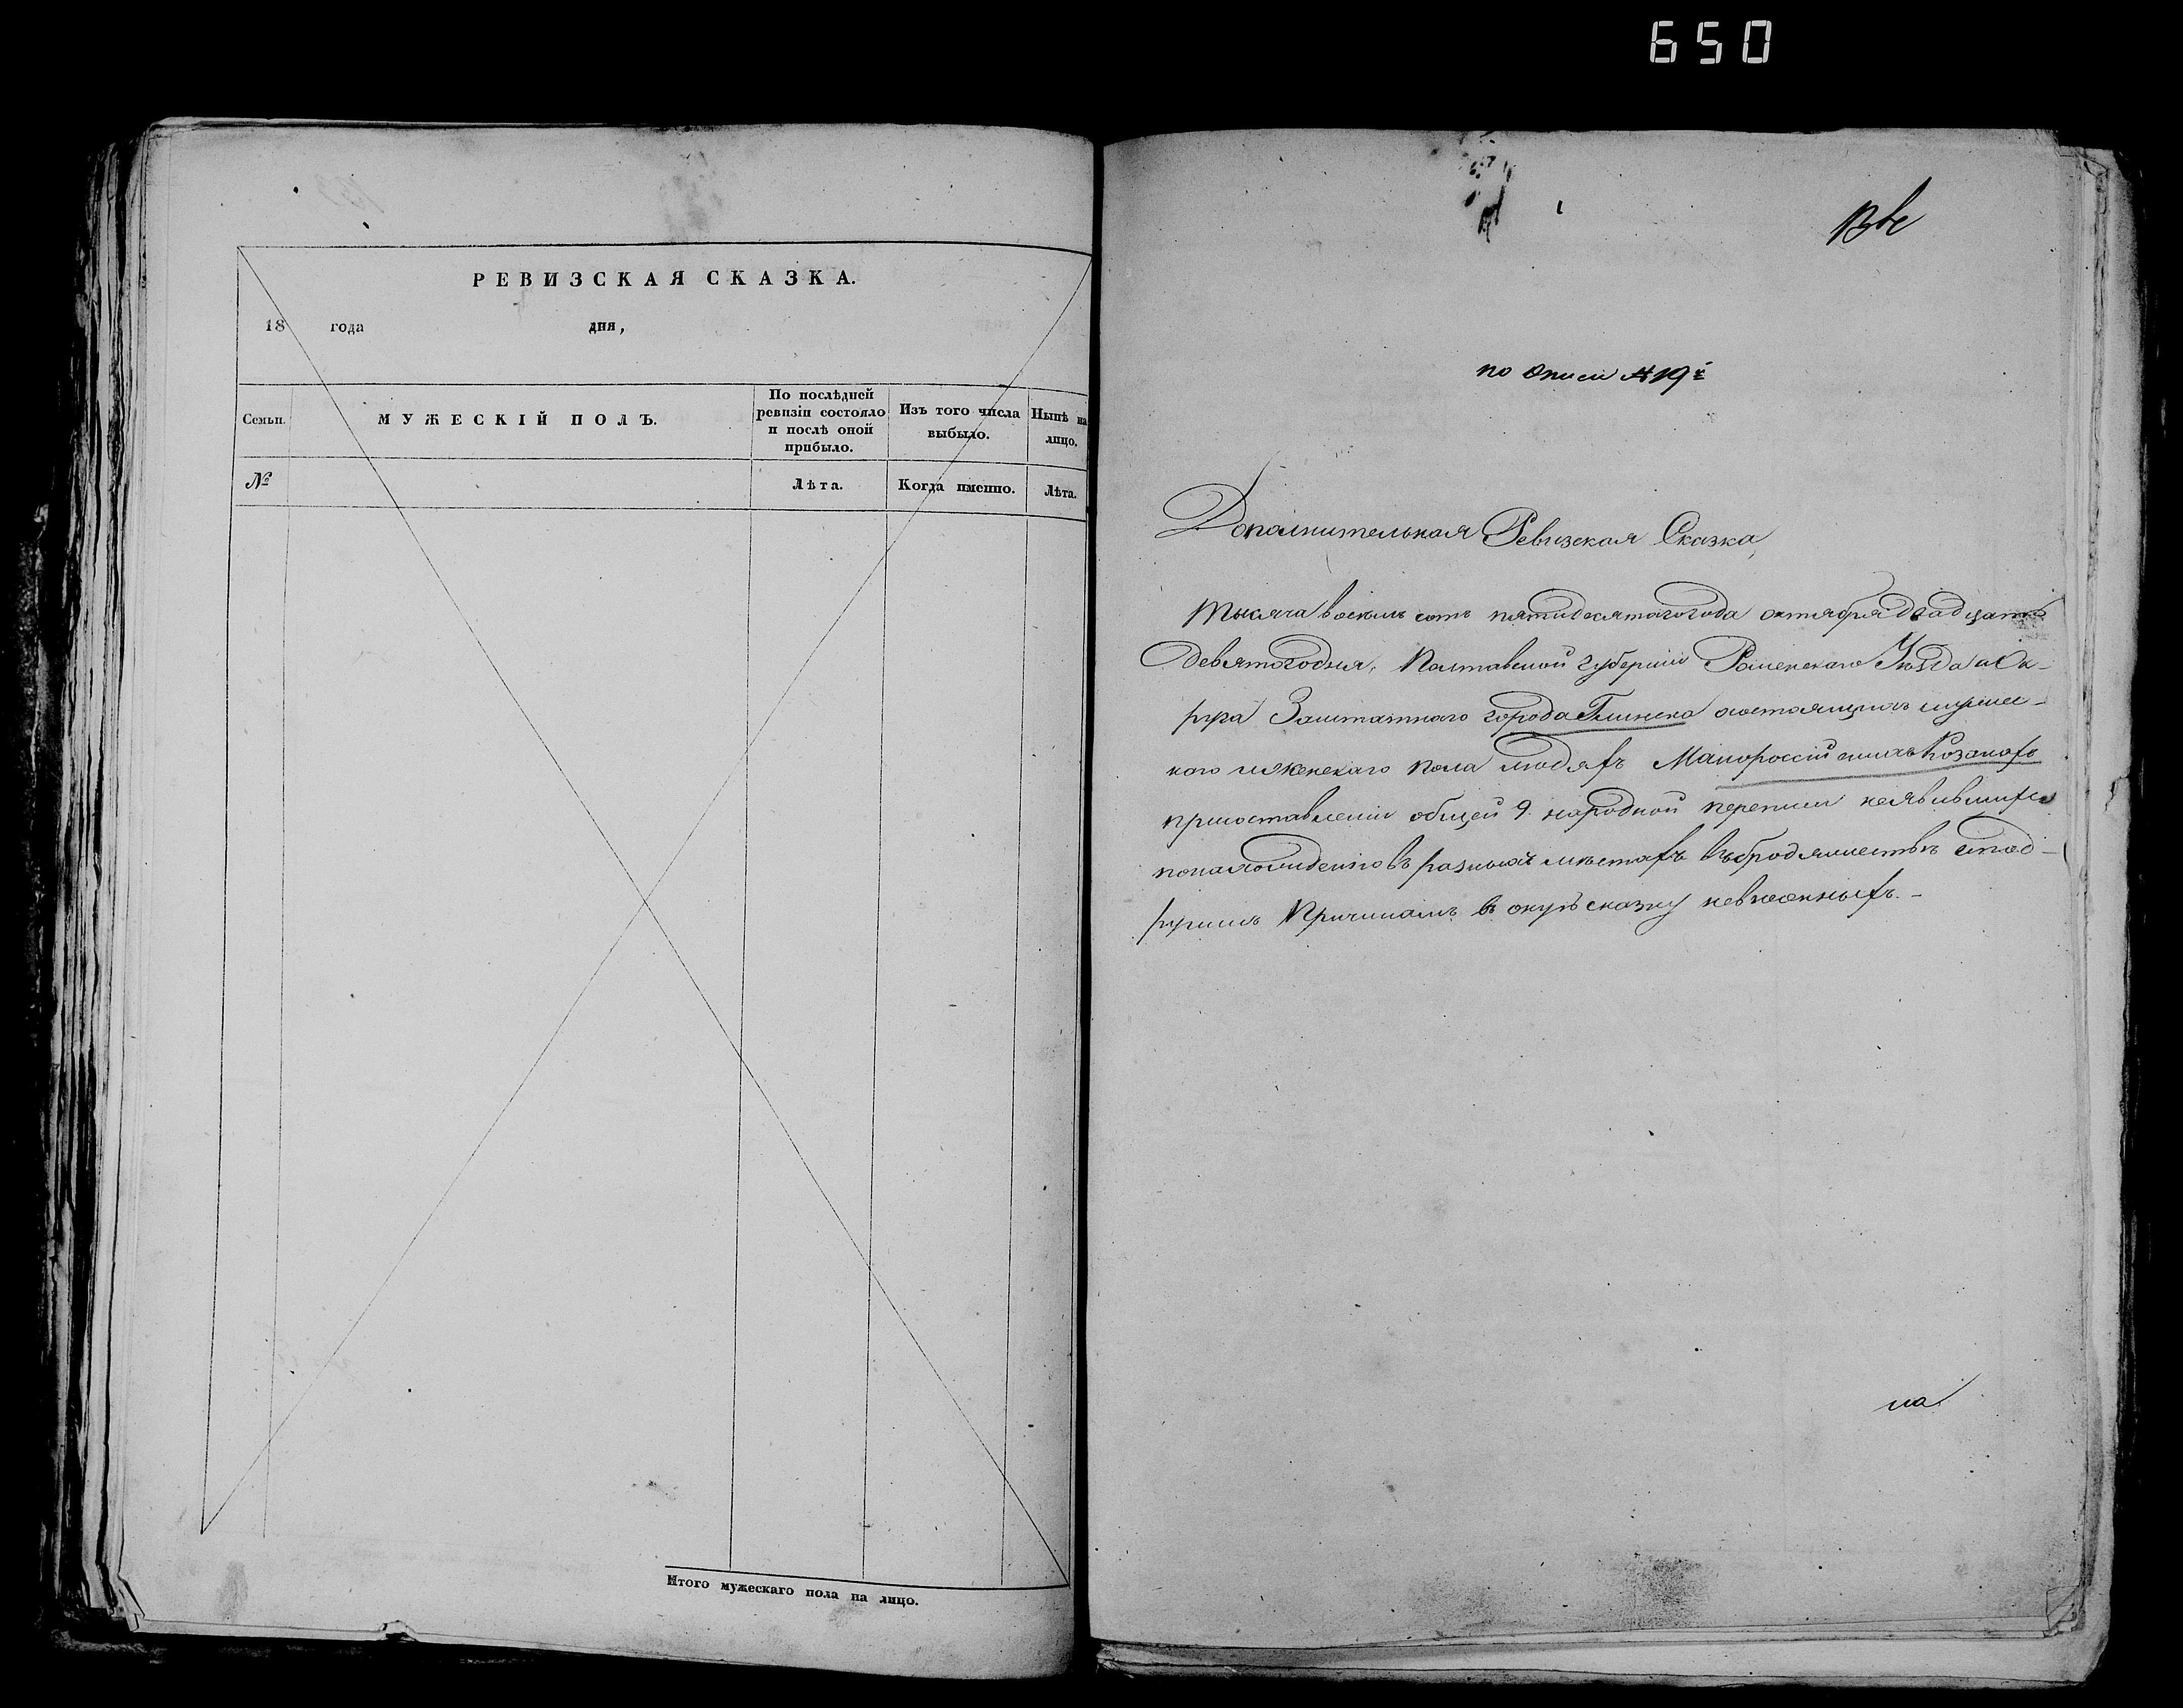 650
РЕВИЗСКАЯ СКАЗКА.
18 года дня,
Семьи.
МУЖЕСКІЙ ПОЛЪ.
По послѣдней ревизіи состояло и послѣ оной прибыло.
Изъ того числа выбыло.
Нынѣ на лицо.
№
Лѣта.
Когда именно.
Лѣта.
Итого мужескаго пола на лицо.
по Описи №19й
Дополнительная Ревизская Сказка,
Тысяча восемь сотъ пятидесятаго года октября двадцать
девятого дня, Полтавской губерніи Роменского Уѣзда и Ок-
руга Заштатного города Глинска о состоящихъ мужес-
кого и женскаго пола людяхъ Малороссійскихъ Козакахъ
при составленіи общей 9. народной переписи неявившихся
по нахожденію въ разныхъ мѣстахъ въ бродяжествѣ и по д-
ругимъ Причинамъ въ оную сказку невнесенныхъ.-
на